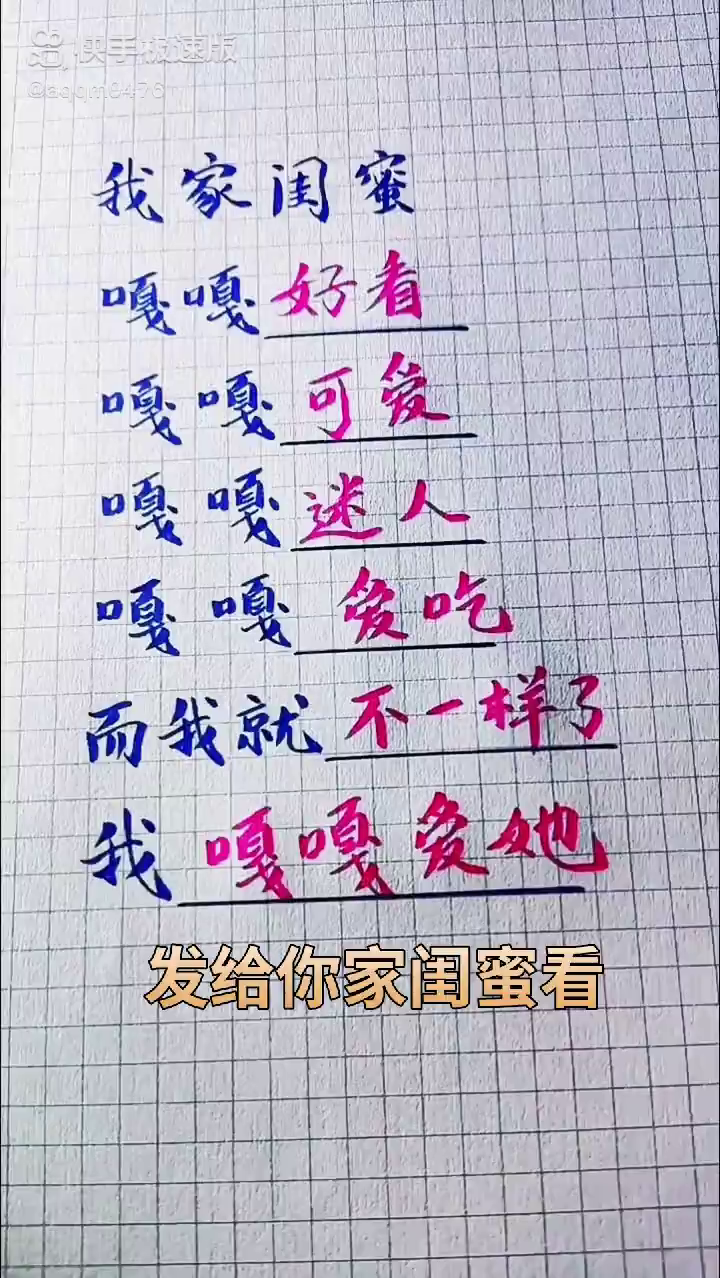 快手极速版
@aqqm6476
我家闺蜜
嘎嘎好看
嘎嘎可爱
嘎嘎迷人
嘎嘎爱吃
而我就不一样了
我嘎嘎爱她
发给你家闺蜜看